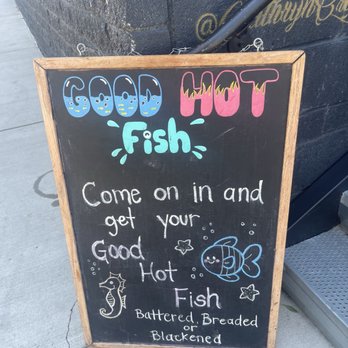 GOOD HOT
Fish
Come on in and
get your
Good
Hot
Fish
Battered, Breaded
or
Blackened